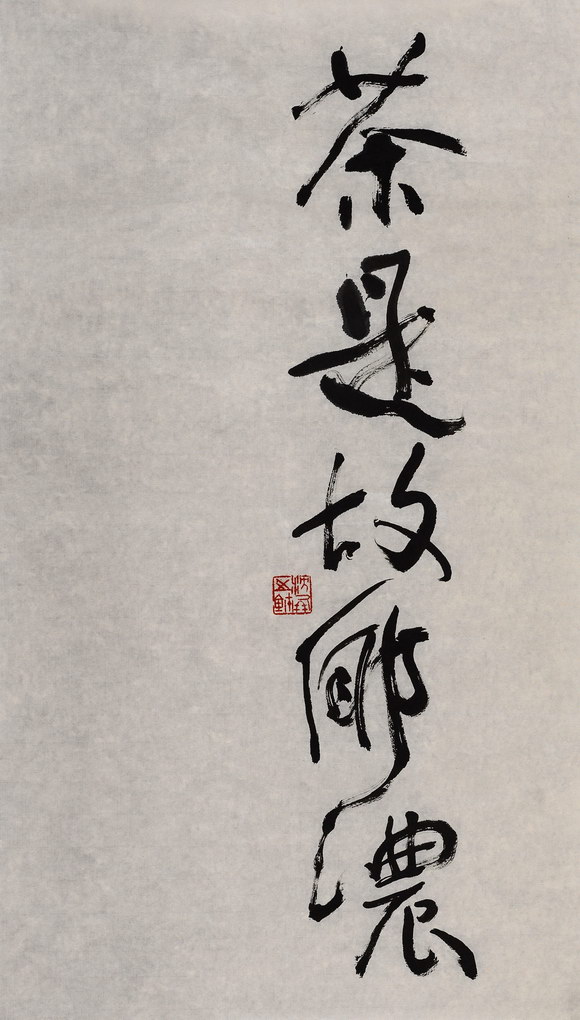 茶是故鄉濃